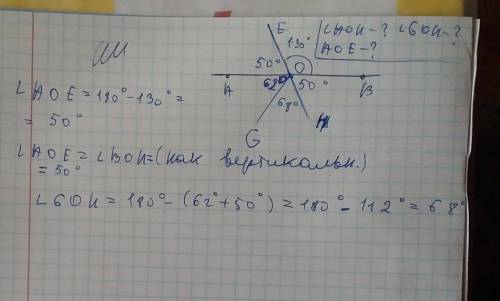 ∠AOH-? ∠GOH-?
AOE-?
E
130°
50°
O
A
62°
50°
B
68°
G
H
∠AOE = 180° - 130° =
= 50°
∠AOE = ∠BOH = (как вертикальн.)
= 50°
∠GOH = 180° - (62° + 50°) = 180° - 112° = 68°